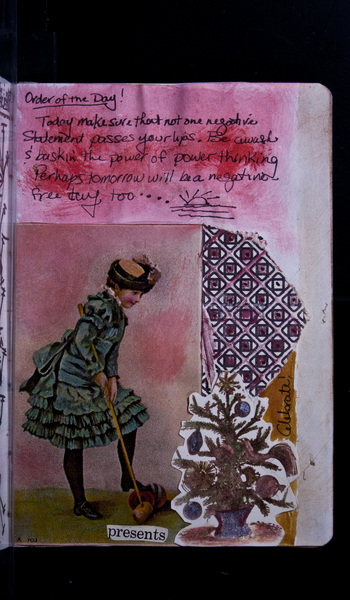 Order of the Day!
Today make sure that not one negative
Statement passes your lips. Be awash
& bask in the power of power thinking
Perhaps tomorrow will be a negative
free day, too....
Celebrate!
presents